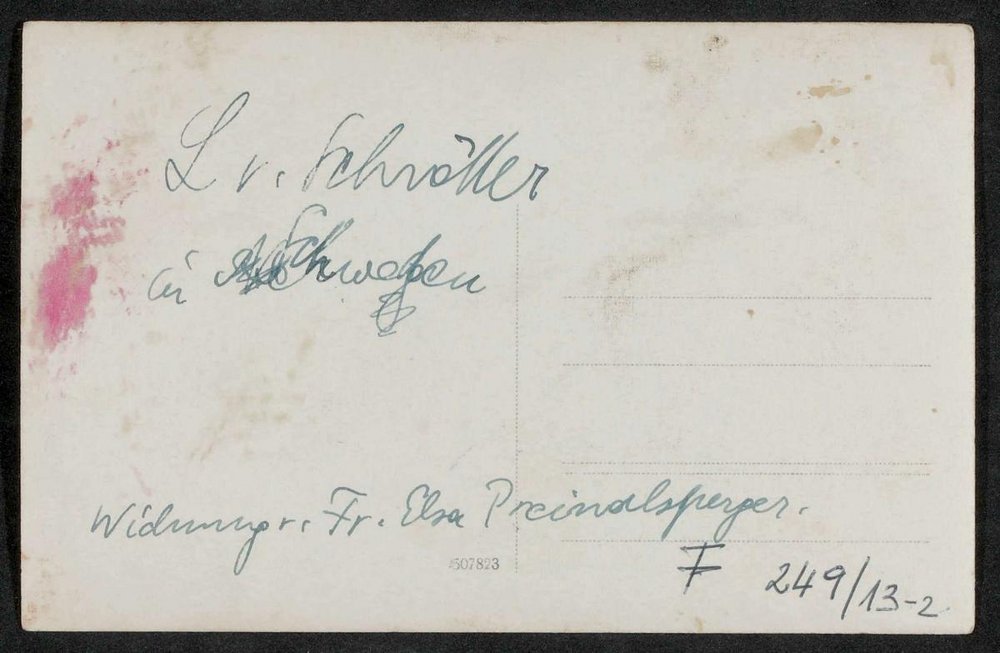 L v. Schrötter
in
Widmung v. Fr. Elsa Preindlsperger.
507823
F 249/13-2